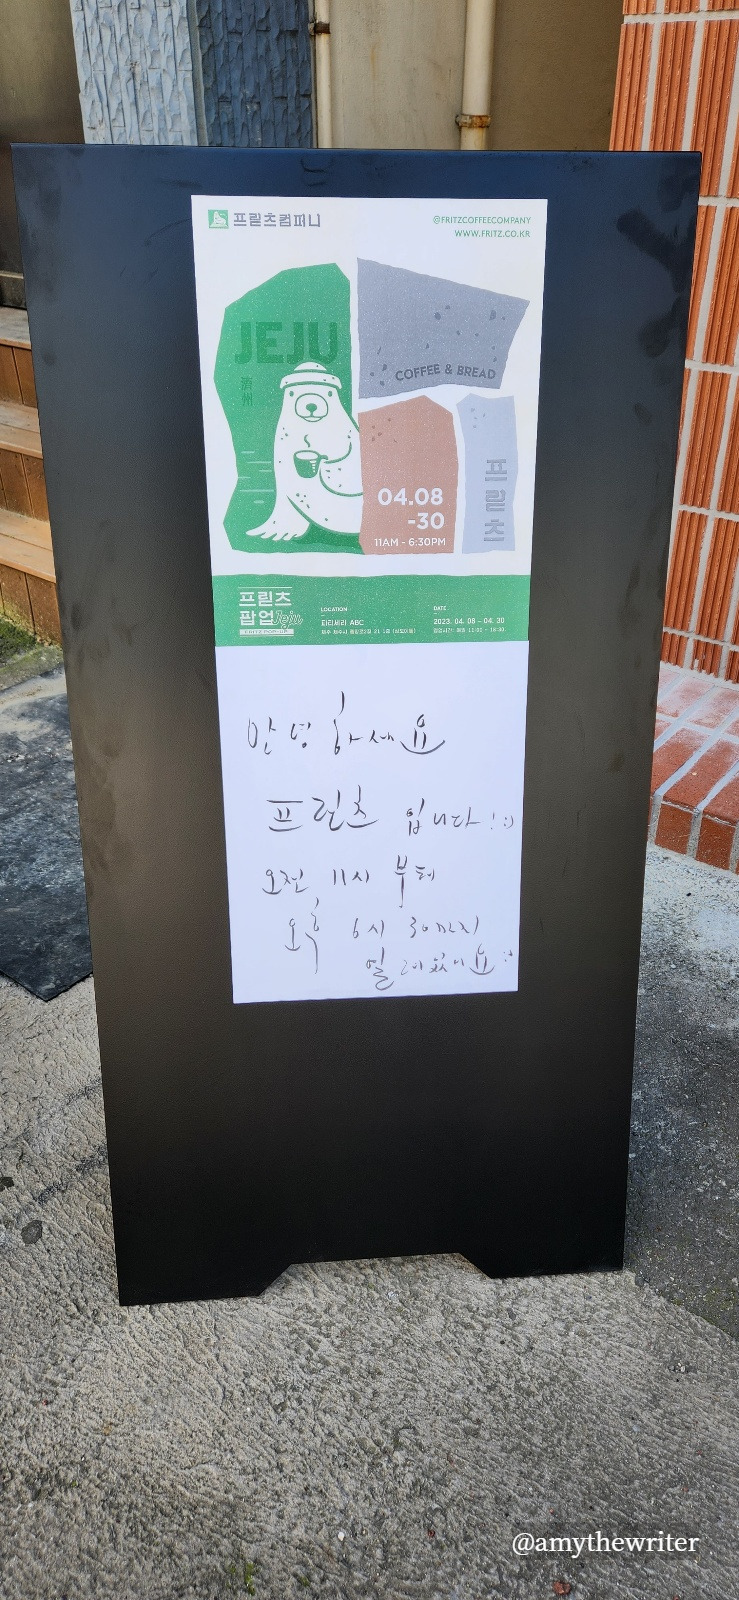 프릳츠컴퍼니
@FRITZCOFFEECOMPANY
WWW.FRITZ.CO.KR
JEJU
濟州
COFFEE & BREAD
프릳츠
04.08
-30
11AM - 6:30PM
프릳츠
팝업 Jeju
FRITZ POP-UP
LOCATION
타티세리 ABC
DATE
2023. 04. 08 – 04. 30
안녕하세요
프릳츠 입니다! :)
오전 11시 부터
오후 6시 30까지
열려있어요 :)
@amythewriter